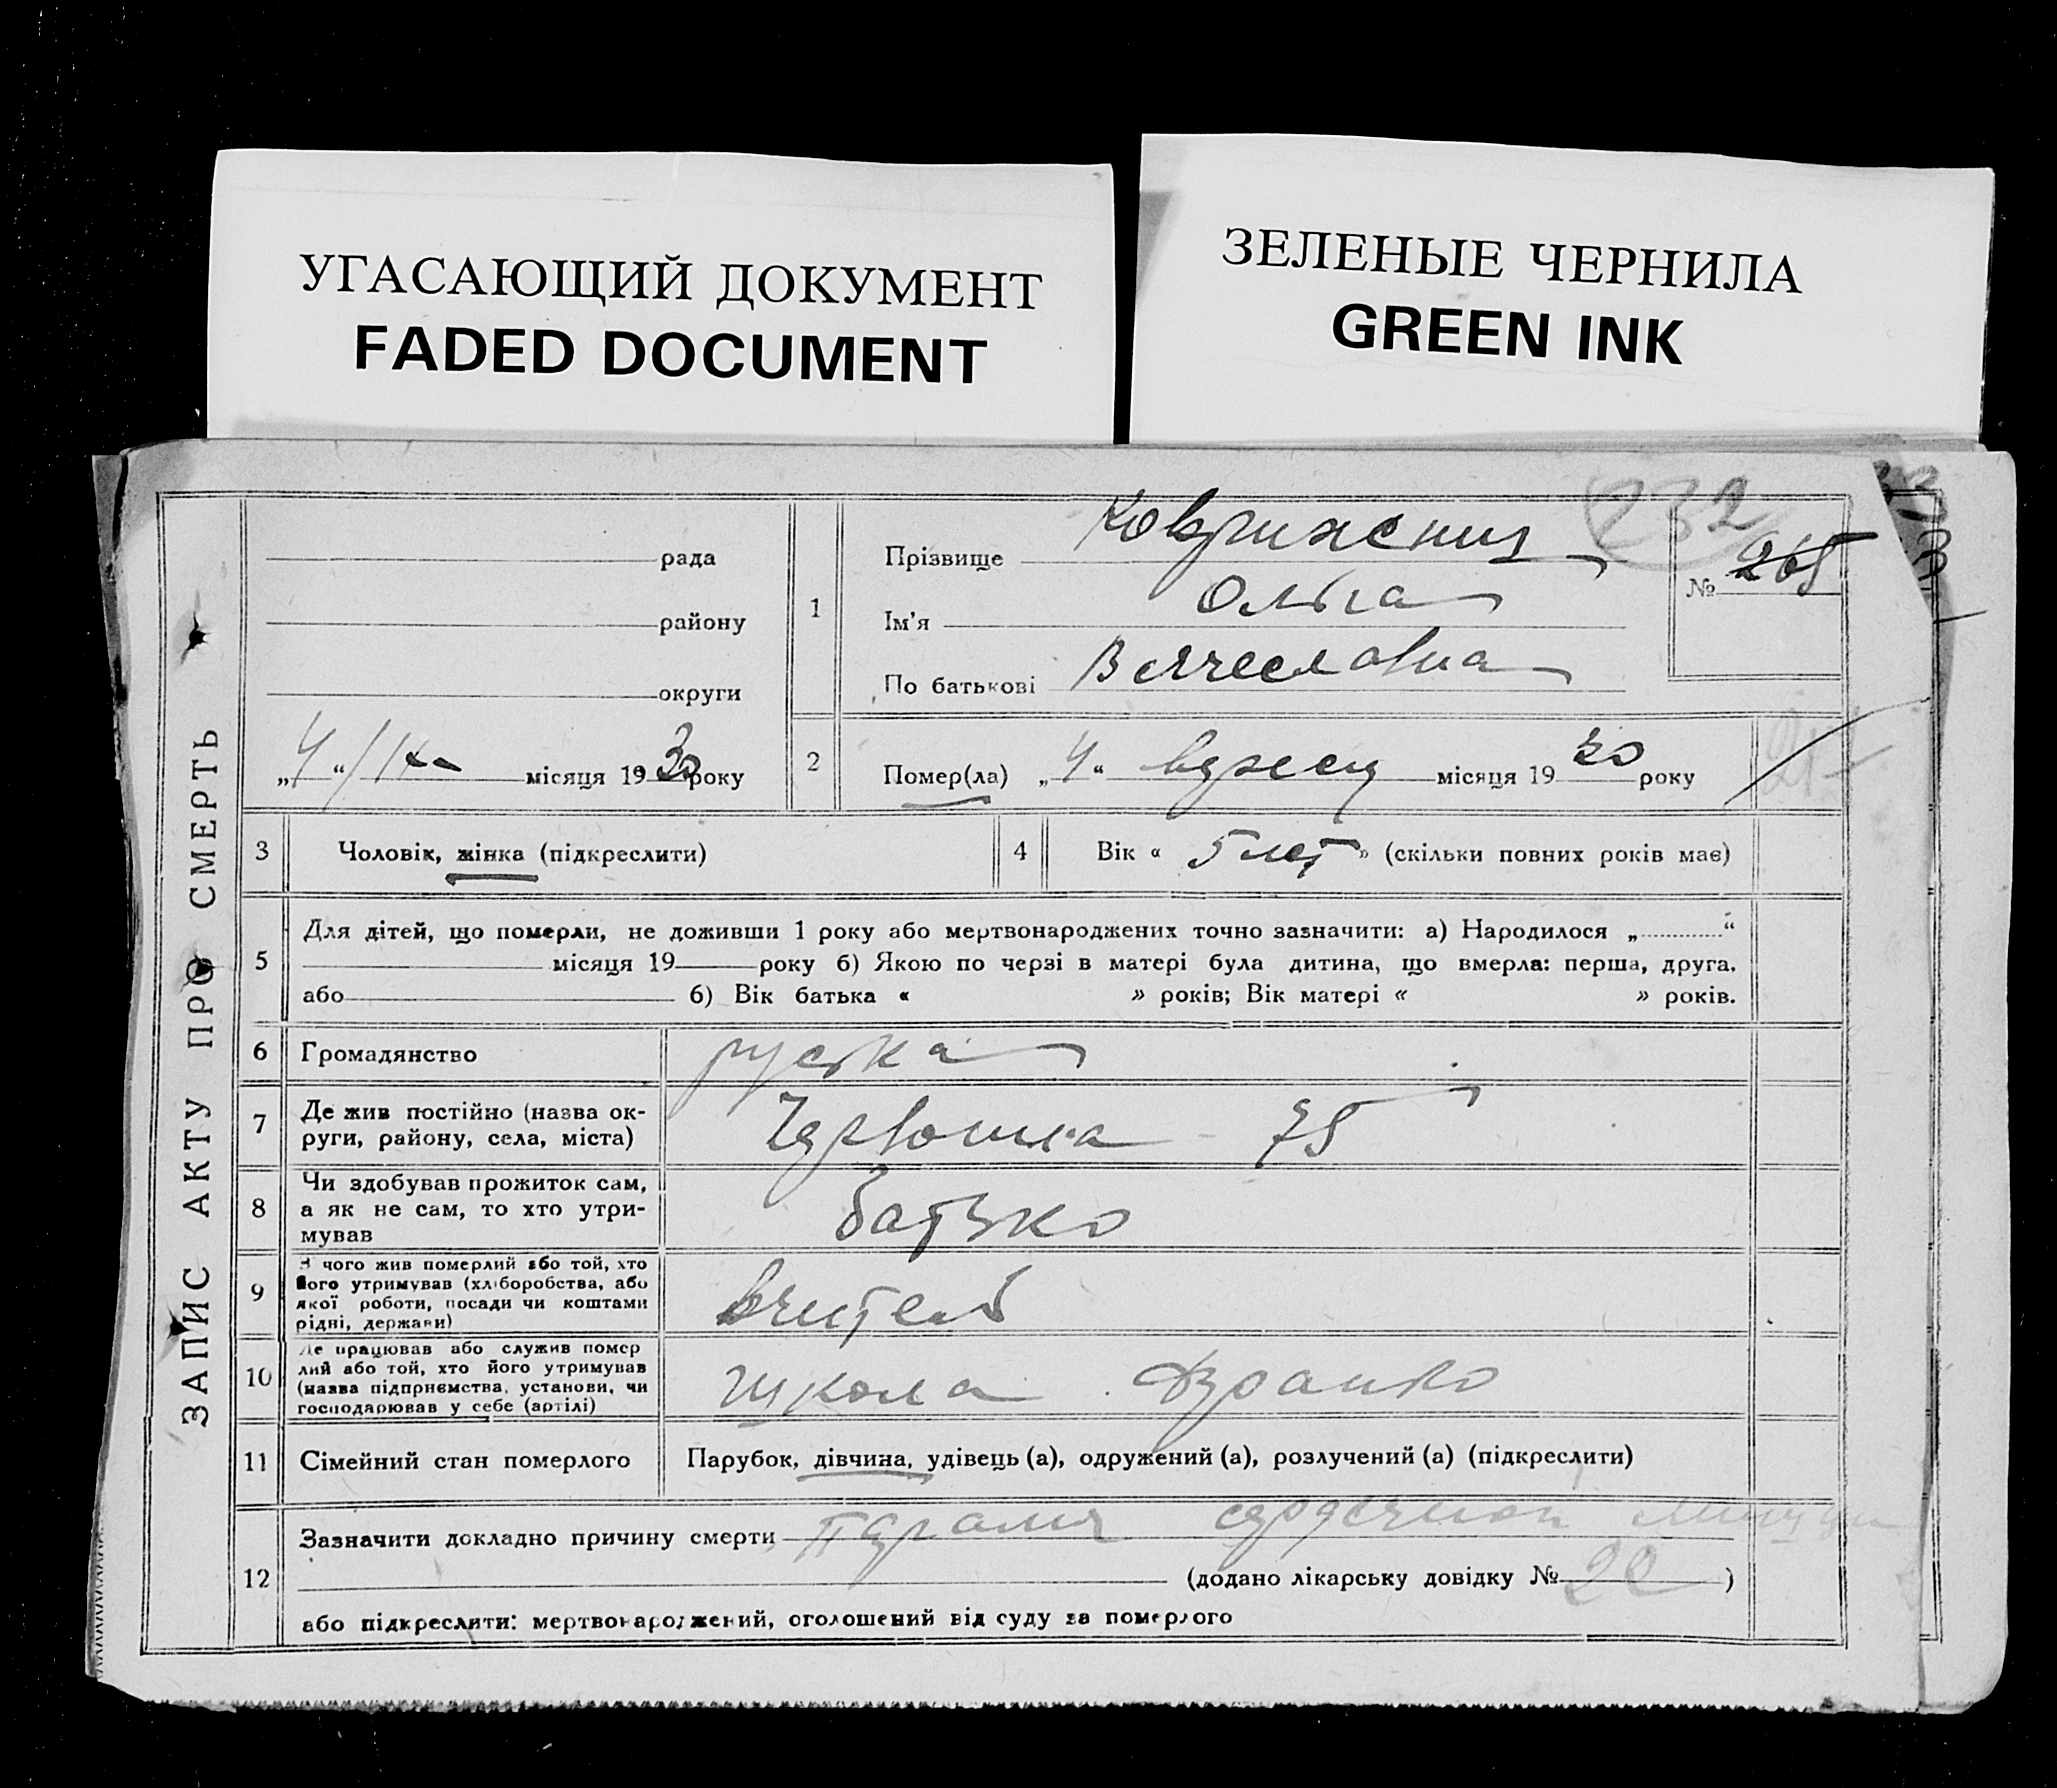 УГАСАЮЩИЙ ДОКУМЕНТ
FADED DOCUMENT
ЗЕЛЕНЫЕ ЧЕРНИЛА
GREEN INK
ЗАПИС АКТУ ПРО СМЕРТЬ
232
№ 265
рада
району
округи
„4“/IX місяця 1930 року
1
Прізвище
Ім'я Ольга
По батькові Вячеславна
2
Помер(ла) „4“ місяця 1930 року
3 Чоловік, жінка (підкреслити)
4 Вік « 5 лет » (скільки повних років має)
5
Для дітей, що померли, не доживши 1 року або мертвонароджених точно зазначити: а) Народилося „ “
місяця 19 року б) Якою по черзі в матері була дитина, що вмерла: перша, друга,
або б) Вік батька « » років; Вік матері « » років.
6 Громадянство руська
7 Де жив постійно (назва ок-
руги, району, села, міста) 75
8 Чи здобував прожиток сам,
а як не сам, то хто утри-
мував батько
9 З чого жив померлий або той, хто
його утримував (хліборобства, або
якої роботи, посади чи коштами
рідні, держави) вчитель
10 Де працював або служив помер
лий або той, хто його утримував
(назва підприємства, установи, чи
господарював у себе (артілі) школа Франко
11 Сімейний стан померлого Парубок, дівчина, удівець (а), одружений (а), розлучений (а) (підкреслити)
12
Зазначити докладно причину смерти
(додано лікарську довідку № )
або підкреслити: мертвонароджений, оголошений від суду за померлого